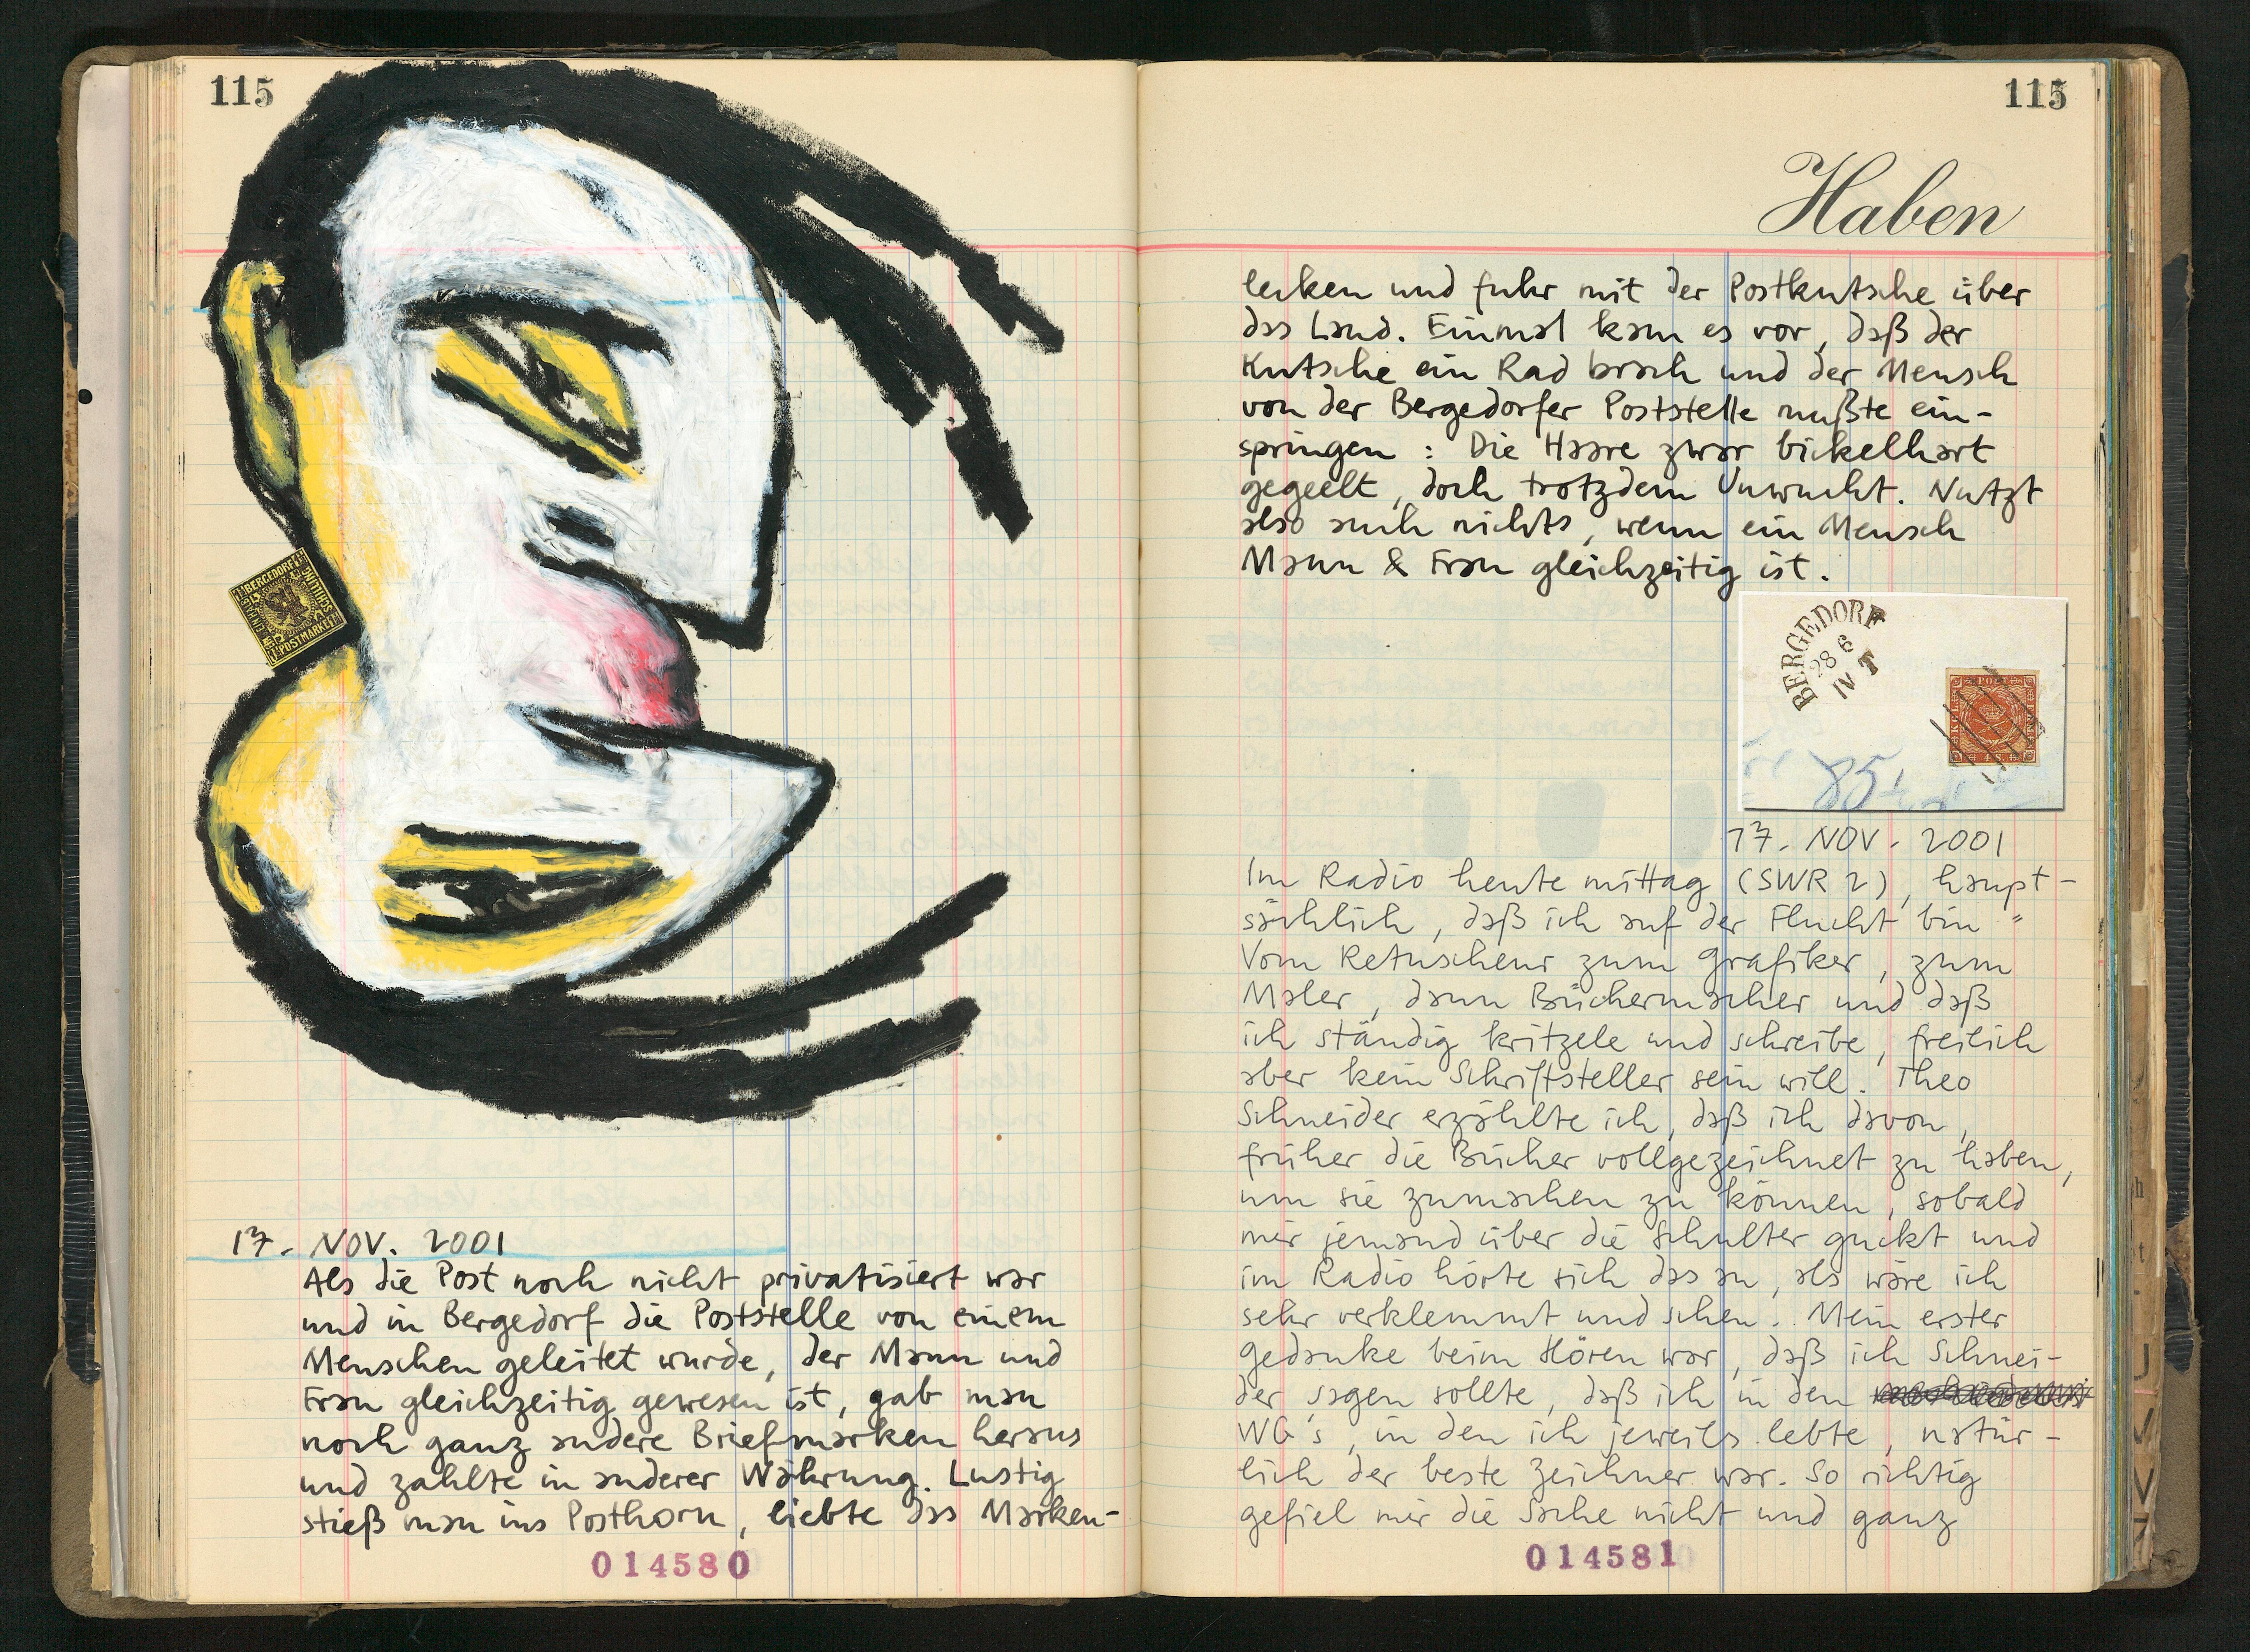 115
BERGEDORF
SCHILLING
POSTMARKE
EIN
17. NOV. 2001
Als die Post noch nicht privatisiert war
und in Bergedorf die Poststelle von einem
Menschen geleitet wurde, der Mann und
Frau gleichzeitig gewesen ist, gab man
noch ganz andere Briefmarken heraus
und zahlte in anderer Währung. Lustig
stieß man ins Posthorn, liebte das Marken-
014580
115
Haben
lecken und fuhr mit der Postkutsche über
das Land. Einmal kam es vor, daß der
Kutsche ein Rad brach und der Mensch
von der Bergedorfer Poststelle mußte ein-
springen : Die Haare zwar bickelhart
gegeelt, doch trotzdem Unwucht. Nutzt
also auch nichts, wenn ein Mensch
Mann & Frau gleichzeitig ist.
BERGEDORF
28 6
IV T
POST
4 S.
85
17. NOV. 2001
Im Radio heute mittag (SWR 2), haupt-
sächlich, daß ich auf der Flucht bin =
Vom Retuscheur zum Grafiker, zum
Maler, dann Büchermacher und daß
ich ständig kritzele und schreibe, freilich
aber kein Schriftsteller sein will. Theo
Schneider erzählte ich, daß ich davon,
früher die Bücher vollgezeichnet zu haben,
um sie zumachen zu können, sobald
mir jemand über die Schulter guckt und
im Radio hörte sich das an, als wäre ich
sehr verklemmt und scheu. Mein erster
Gedanke beim Hören war, daß ich Schnei-
der sagen sollte, daß ich in den
WG's, in den ich jeweils lebte, natür-
lich der beste Zeichner war. So richtig
gefiel mir die Sache nicht und ganz
014581